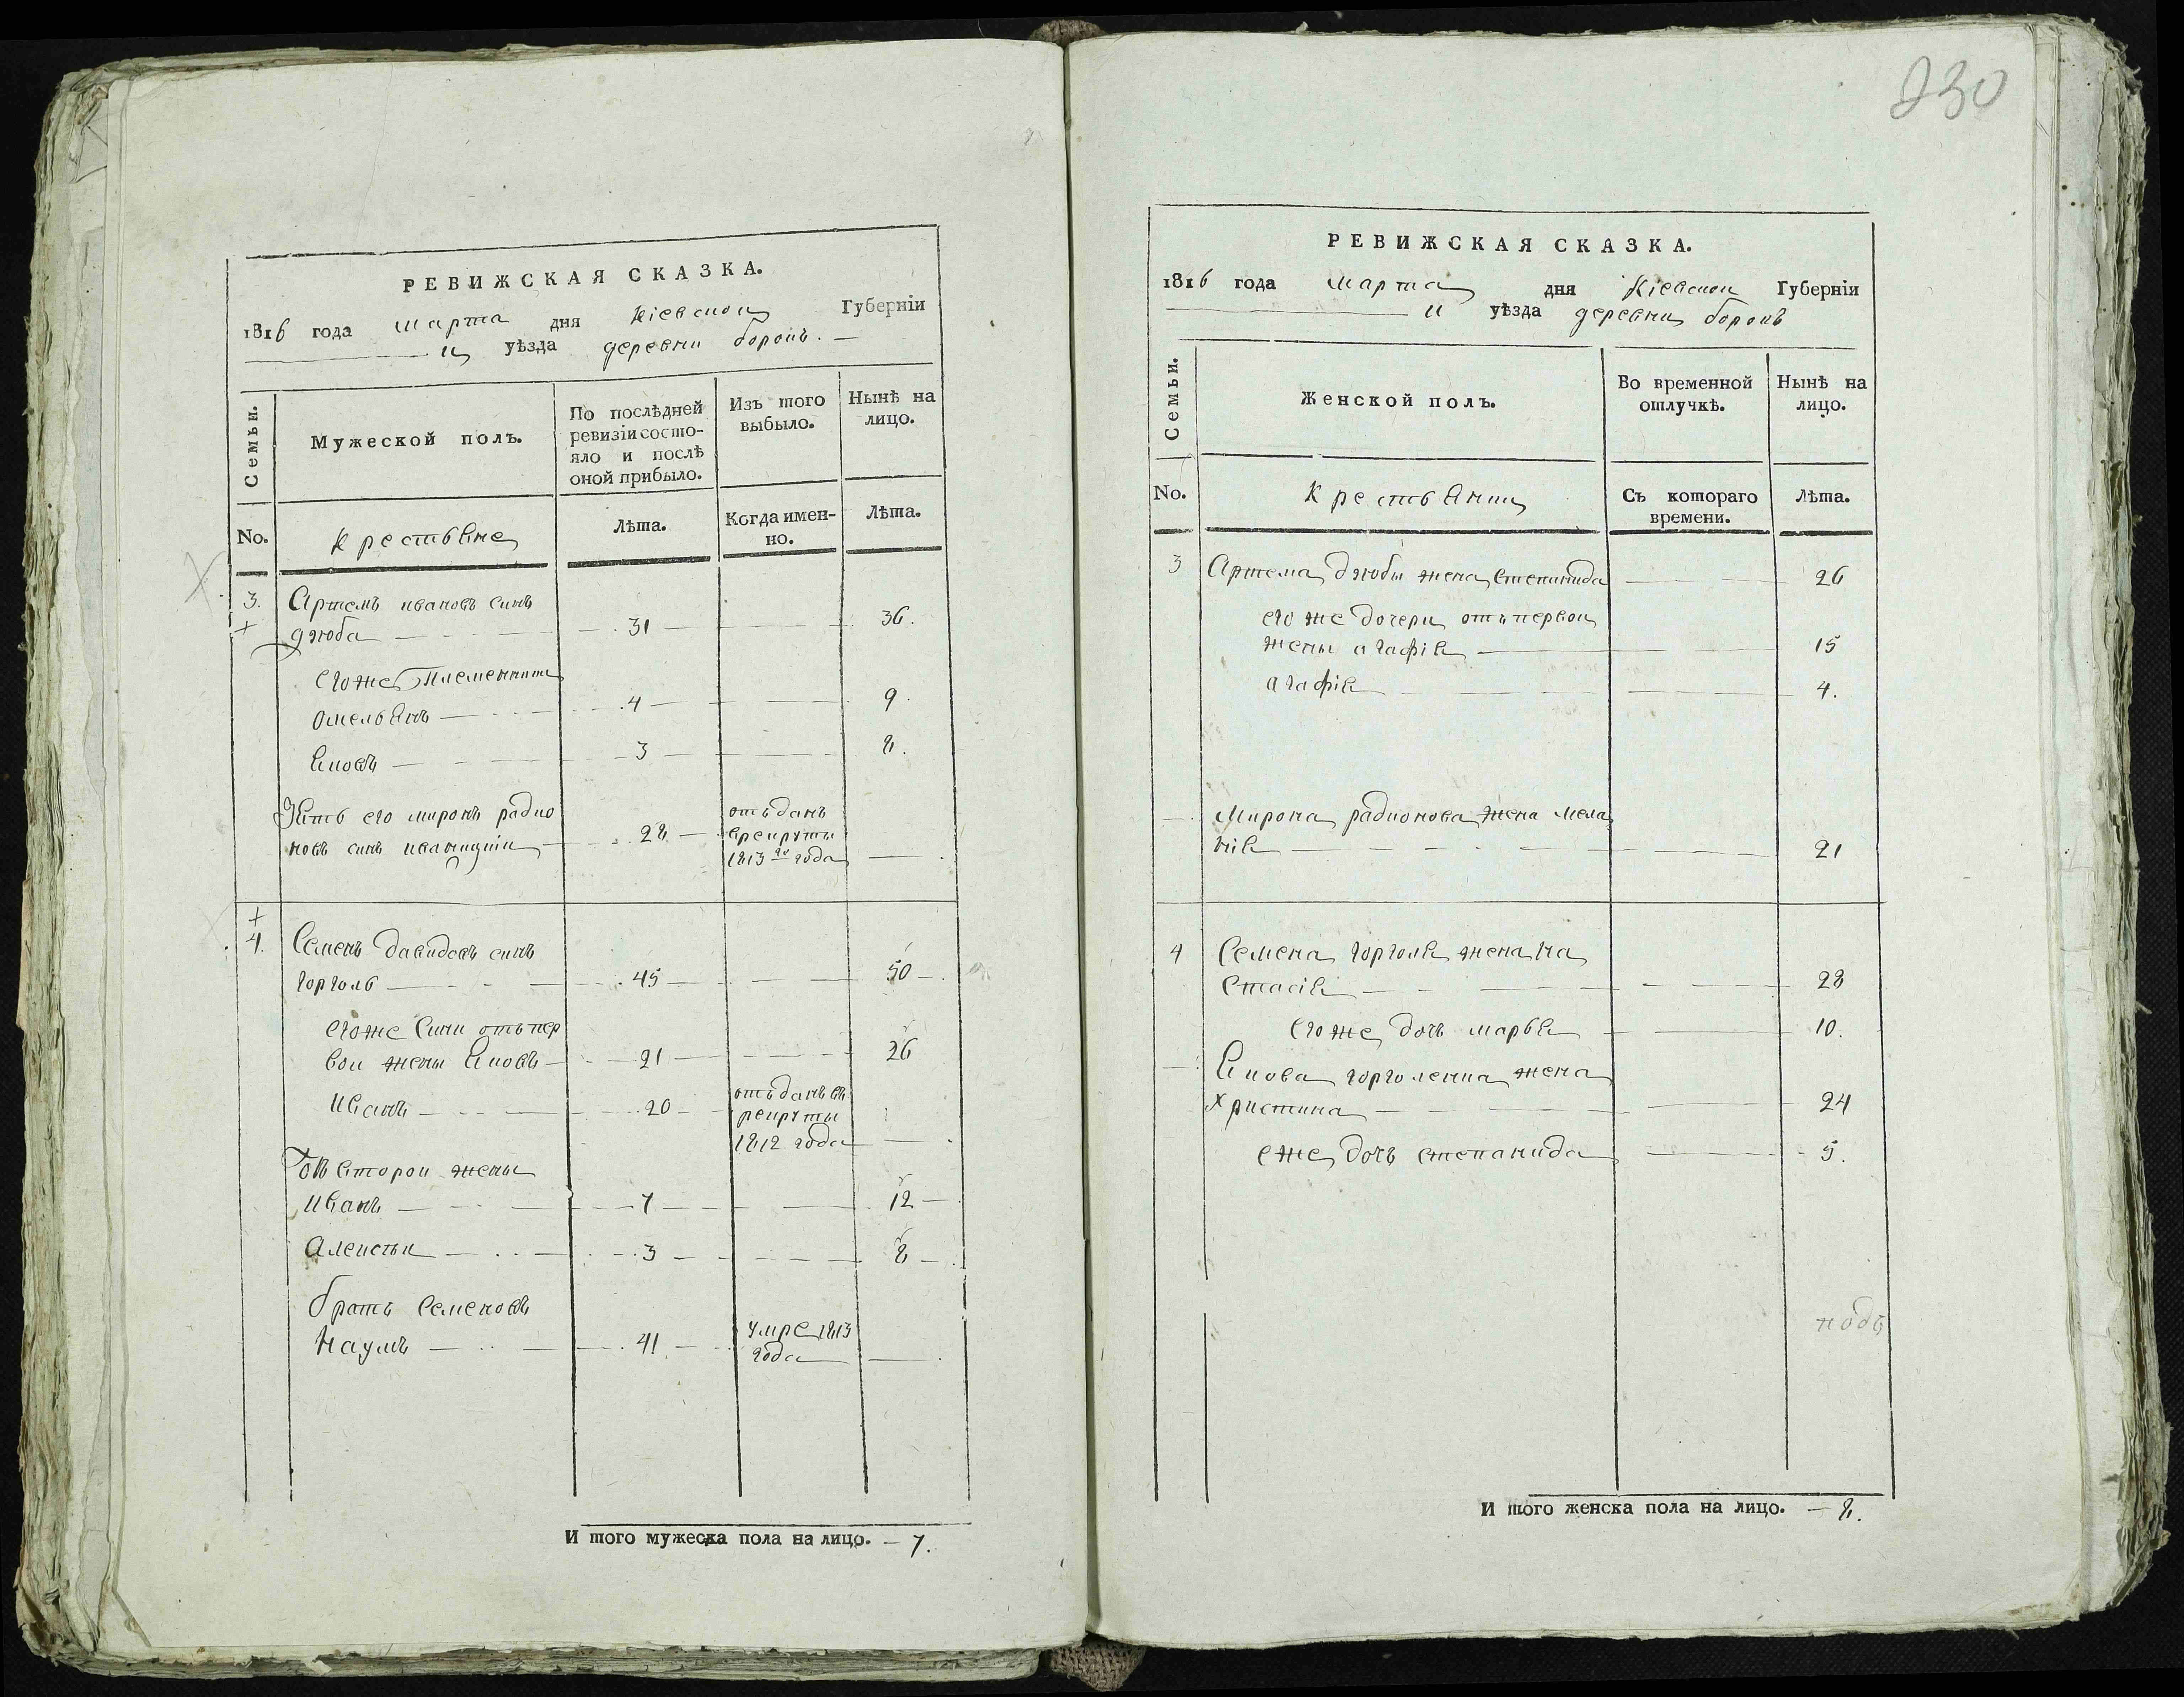 РЕВИЖСКАЯ СКАЗКА.
1816 года марта дня Кіевской Губерніи
и уѣзда деревни борокъ.
Семьи.
Мужеской полъ.
По послѣдней
ревизіи состо-
яло и послѣ
оной прибыло.
Изъ того
выбыло.
Нынѣ на
лицо.
No. крестьяне Лѣта. Когда имен-
но. Лѣта.
3. Артемъ ивановъ синъ
дзюба 31 36.
его же племенники
омельянъ 4 9.
яковъ 3 8.
Зять его миронъ радио
новъ синъ 28
отъданъ
врекруты
1813го года
4. Семенъ давидовъ синъ
горголь 45 50
его же сини отъ пер
вои жены яковъ 21 26
иванъ 20
отъданъ въ
рекруты
1812 года
второи жены
иванъ 7 12
алексѣи 3 8
братъ семеновъ
наумъ 41
умре 1813
года
И того мужеска пола на лицо. 7.
230
РЕВИЖСКАЯ СКАЗКА.
1816 года марта дня Кіевскои Губерніи
и уѣзда деревни борокъ
Семьи.
Женской полъ.
Во временной
отлучкѣ.
Нынѣ на
лицо.
No. крестьянки Съ котораго
времени. Лѣта.
3 Артема дзюбы жена степанида 26
его же дочери отъ первои
жены агафія 15
агафія 4.
мирона радионова жена мела
нія 21
4 Семена горголя жена на
стасія 28
его же дочь марья 10.
якова горголенка жена
христина 24
еже дочь степанида 5.
И того женска пола на лицо. 8.